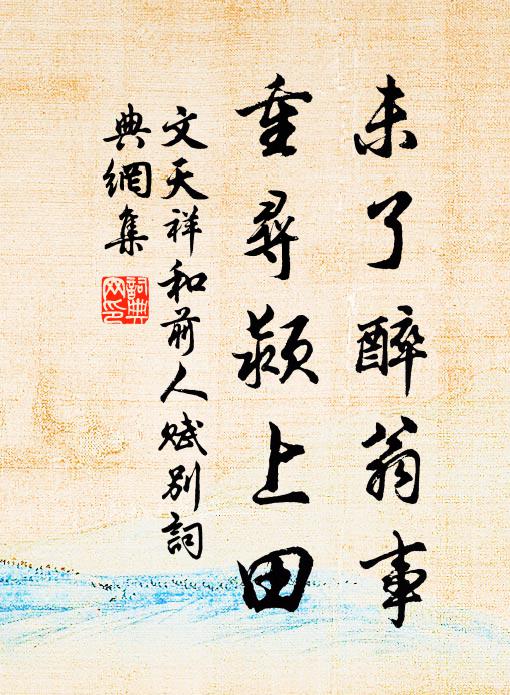 未了醉翁事
重尋潁上田
文天祥和前人賦別詞
典網集
詞典
网印